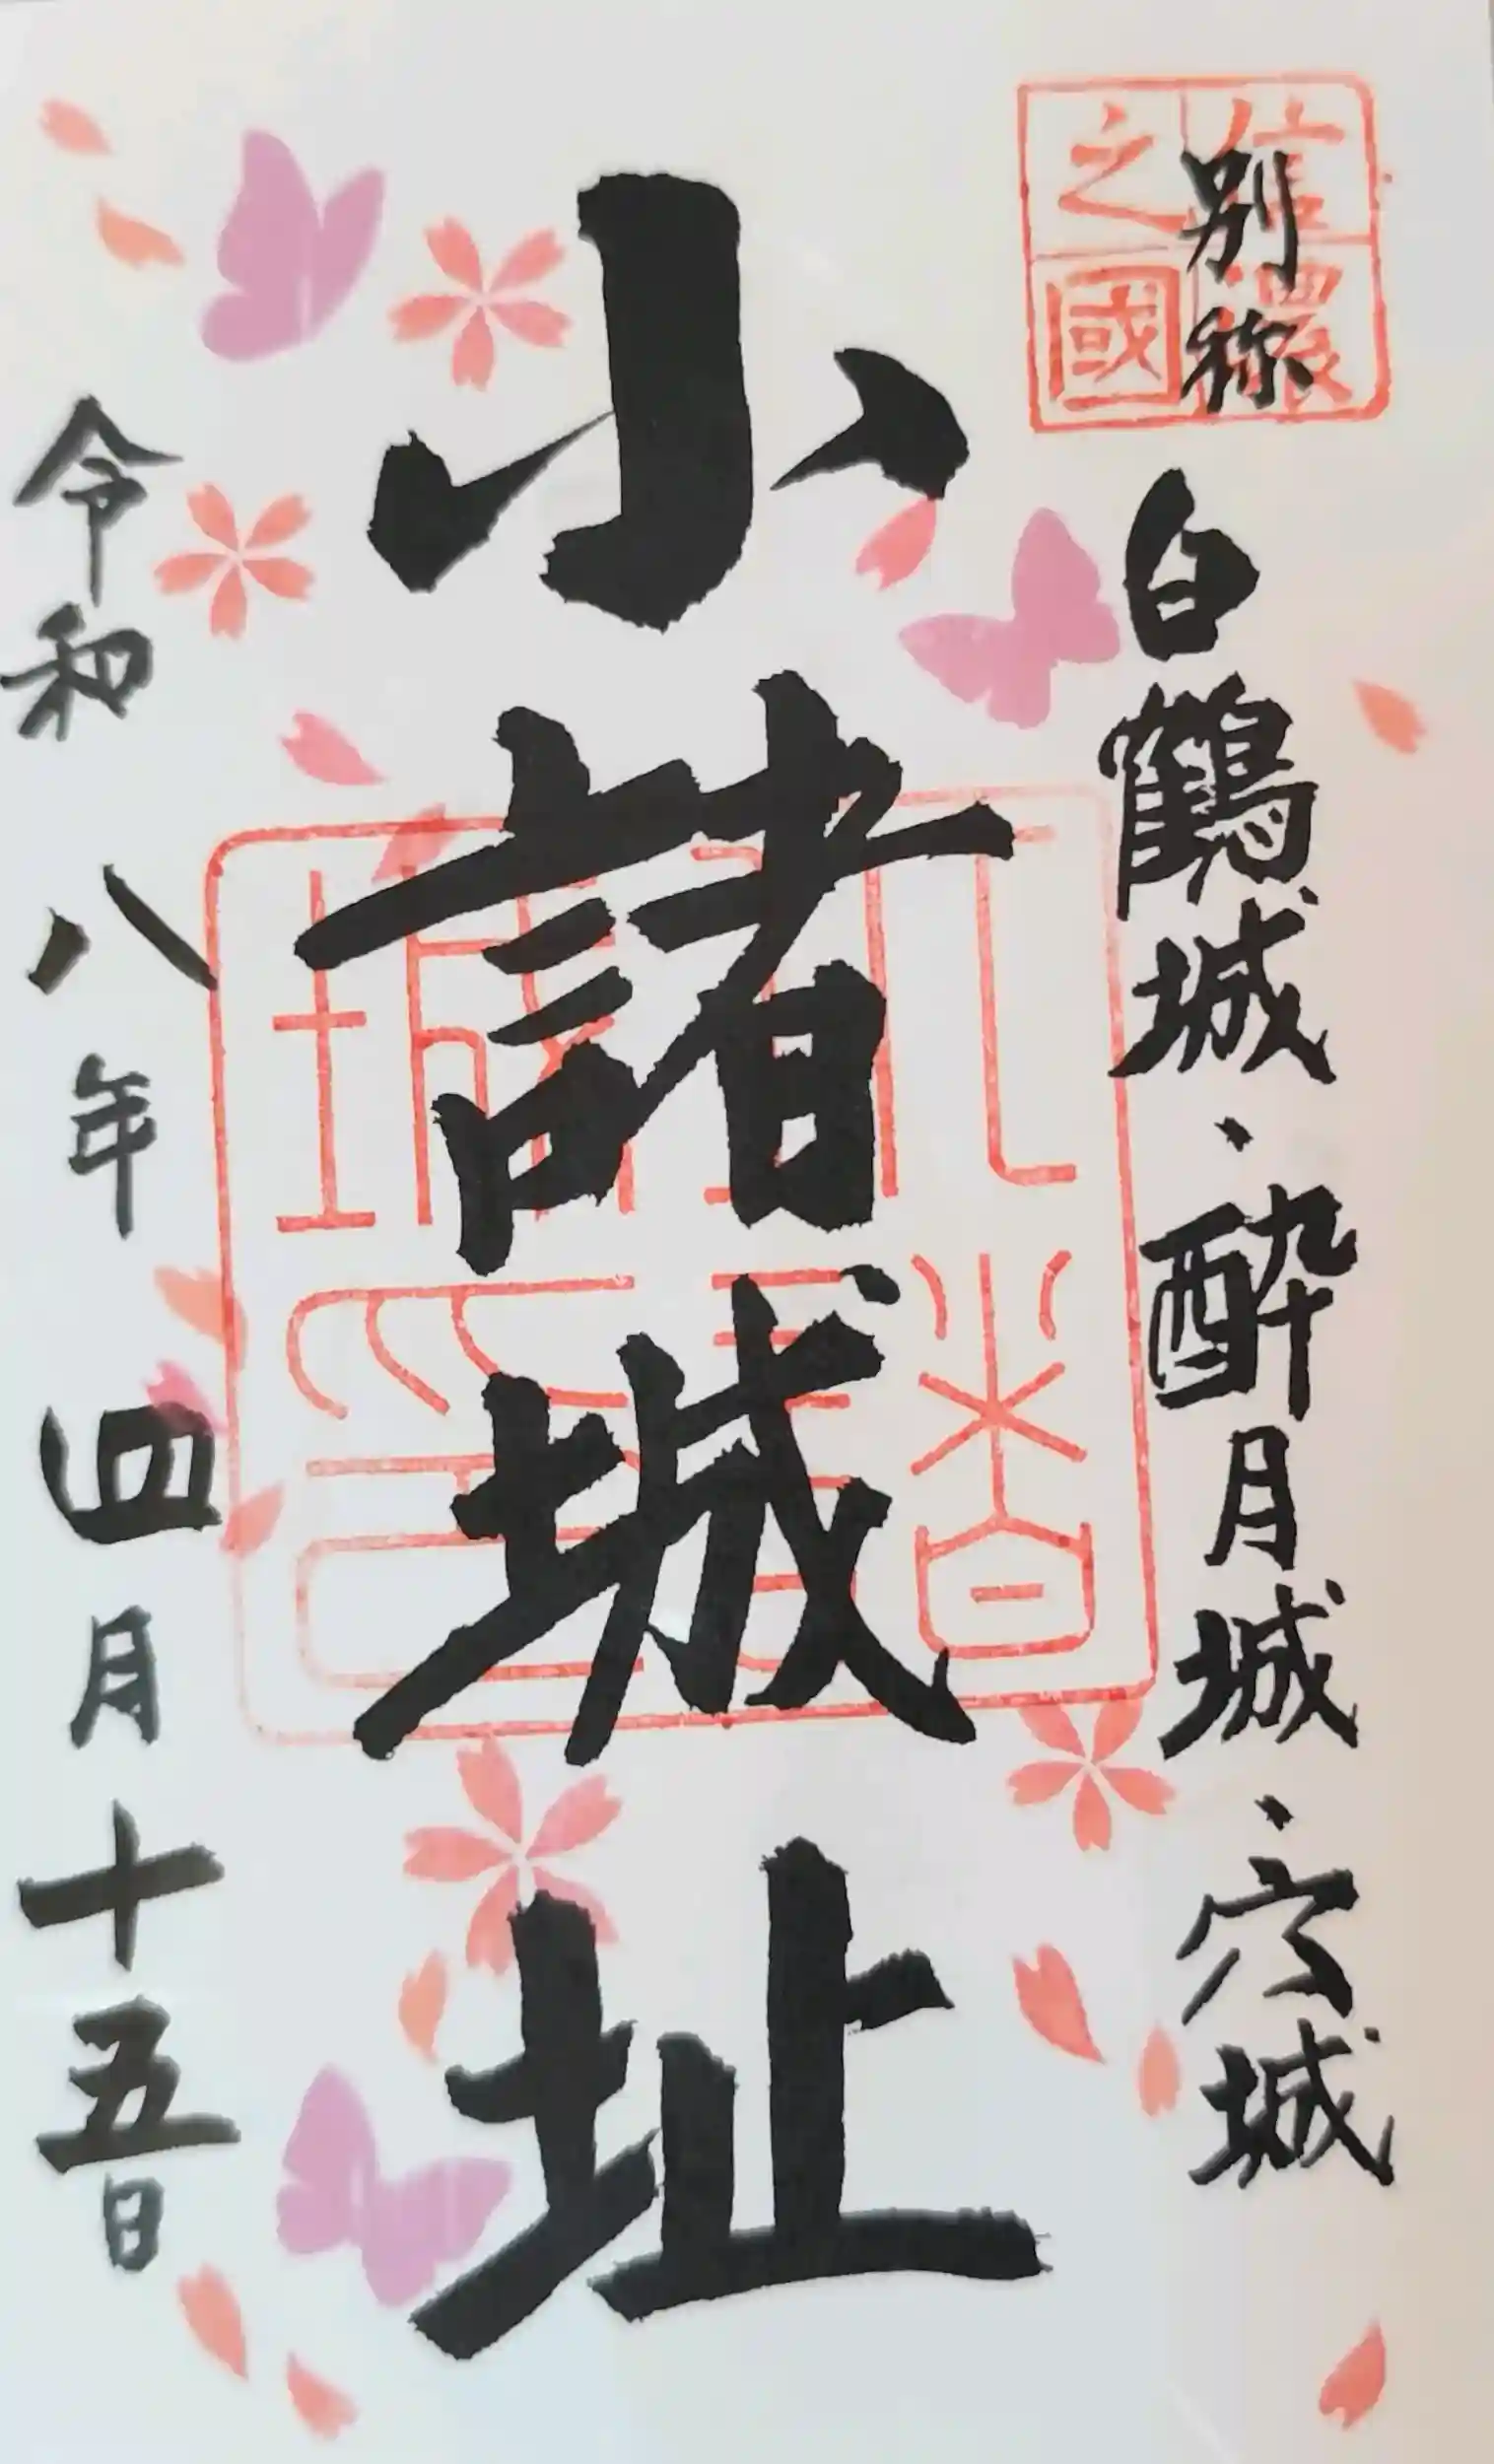 信濃
之國
別称 白鶴城・酔月城・穴城
小諸城址
令和八年四月十五日